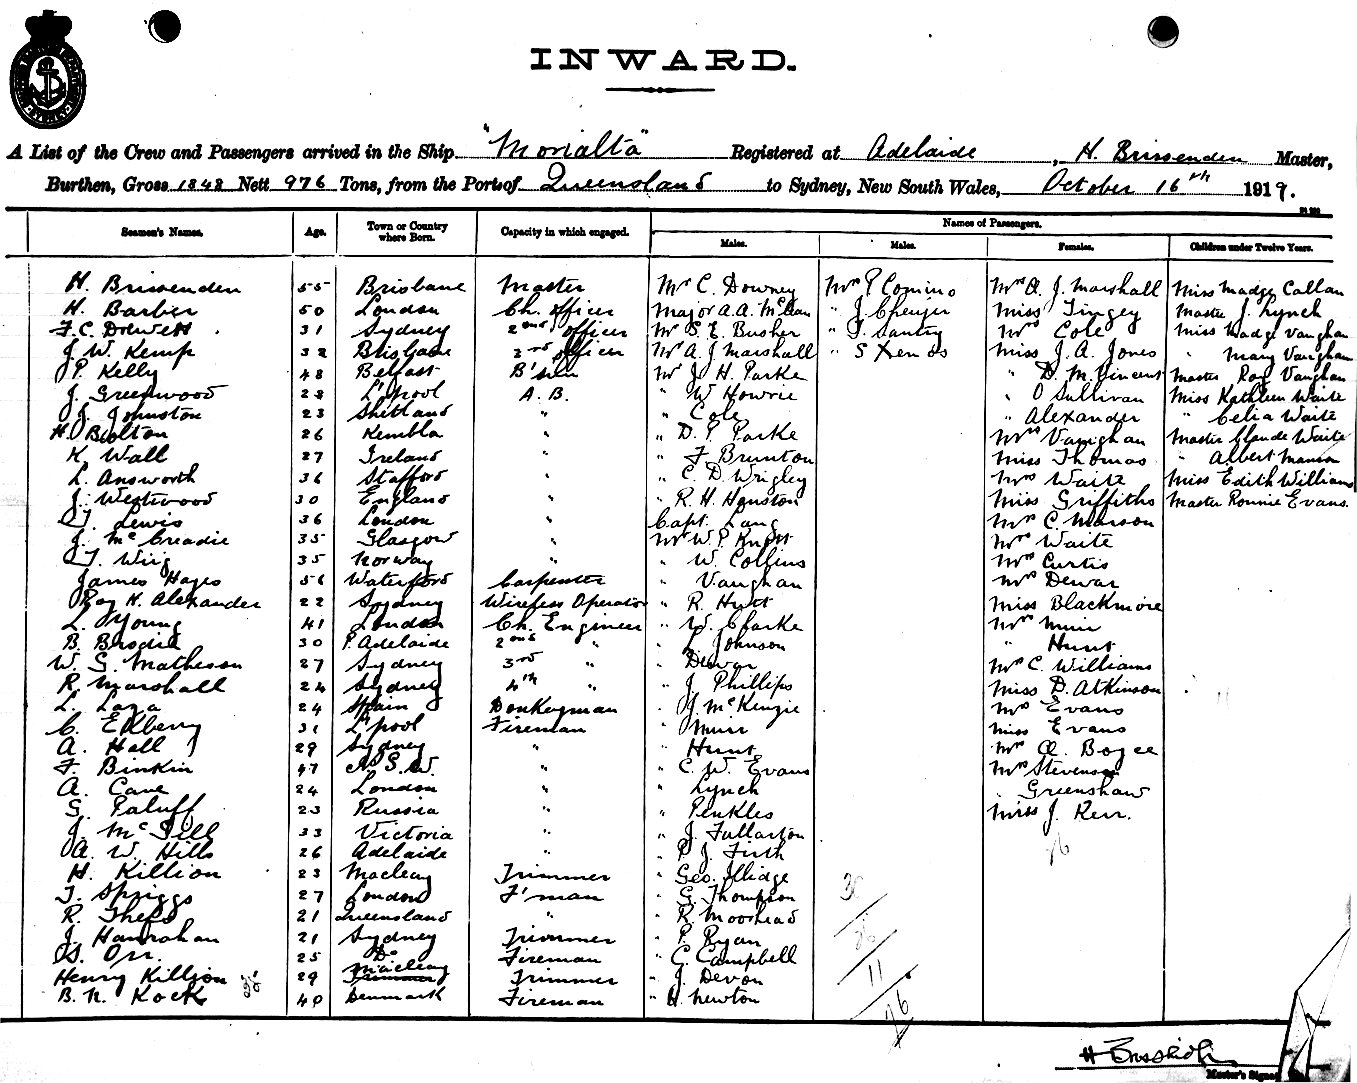 INWARD.
A List of the Crew and Passengers arrived in the Ship "Morialta" Registered at Adelaide, H. Brissenden Master,
Burthen, Gross 1848 Nett 976 Tons, from the Port of Queensland to Sydney, New South Wales, October 16th 1919.
Seamen's Names. Age. Town or Country where Born. Capacity in which engaged. Names of Passengers.
Males. Males. Females. Children under Twelve Years.
H. Brissenden 55 Brisbane Master Mr C. Downey Mr P Comino Mrs A. J. Marshall Miss Madge Callan
H. Barber 50 London Ch. Officer Major A. A. McLean " J. Miss Tingey Master J. Lynch
F. C. Drewett 31 Sydney 2nd Officer Mr S. E. Busher " Santry Mrs Cole Miss Madge Vaughan
J. W. Kemp 32 Brisbane 3rd Officer Mr A. J Marshall " S Xenos Miss J. A. Jones " Mary Vaughan
P. Kelly 48 Belfast B'swn Mr J. H. Parke " D. M. Vincent Master Roy Vaughan
J. Greenwood 28 L'pool A. B. " W Howrie " O'Sullivan Miss Kathleen Waite
J. Johnston 23 Shetland " " Cole " Alexander " Celia Waite
H. Bolton 26 Kembla " " D. P. Parke Mrs Vaughan Master Claude Waite
K Wall 27 Ireland " " F. Brunton Miss Thomas " Albert Manson
L. Answorth 36 Stafford " " C. D. Wrigley Mrs Waite Miss Edith Williams
J. Westwood 30 England " " R. H. Houston Miss Griffiths Master Ronnie Evans.
T. Lewis 36 London " Capt. Lang Mrs C. Manson
J. McCreadie 35 Glasgow " Mr W. P. Knight Mrs Waite
T. Wiig 35 Norway " " W. Collins Mrs Curtis
James Hayes 56 Waterford Carpenter " Vaughan Mrs Dewar
Roy K. Alexander 22 Sydney Wireless Operator " R. Hutt Miss Blackmore
L. Young 41 London Ch. Engineer " W. Clarke Mrs Muir
B. Brodie 30 P. Adelaide 2nd " " J. Johnson " Hunt
W. G. Matheson 27 Sydney 3rd " " Dewar Mrs C. Williams
R. Marshall 24 Sydney 4th " " J. Phillips Miss D. Atkinson
L. Laza 24 Spain Donkeyman " J. McKenzie Mrs Evans
C. Edberry 31 L'pool Fireman " Muir Miss Evans
A. Hall 29 Sydney " " Hunt Mrs A. Boyce
F. Binkin 47 N. S. W. " " C. W. Evans Mrs Stevenson
A. Cave 24 London " " Lynch " Greenshaw
G. Paluff 23 Russia " " Penkles Miss J. Kerr.
J. McGill 33 Victoria " " J. Fullarton
A. W. Hills 26 Adelaide " " P. J. Firth
H. Killion 23 Macleay Trimmer " Geo. Illidge
T. Spriggs 27 London F'man " G. Thompson
R. 21 Queensland " " R. Moorhead
J. Hanrahan 21 Sydney Trimmer " P. Ryan
G. Orr. 25 Do Fireman " C. Campbell
Henry Killion 29 Macleay Trimmer " J. Devon
B. N. Kock 40 Denmark Fireman " H. Newton
26
36
26
11
76
H Brissenden
Master's Signature